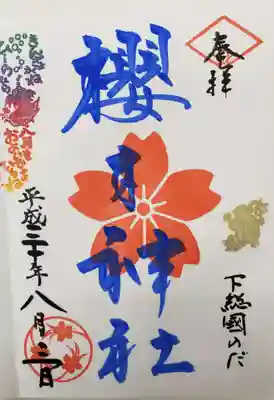 奉拝
櫻木神社
下総國のだ
平成三十年八月三日